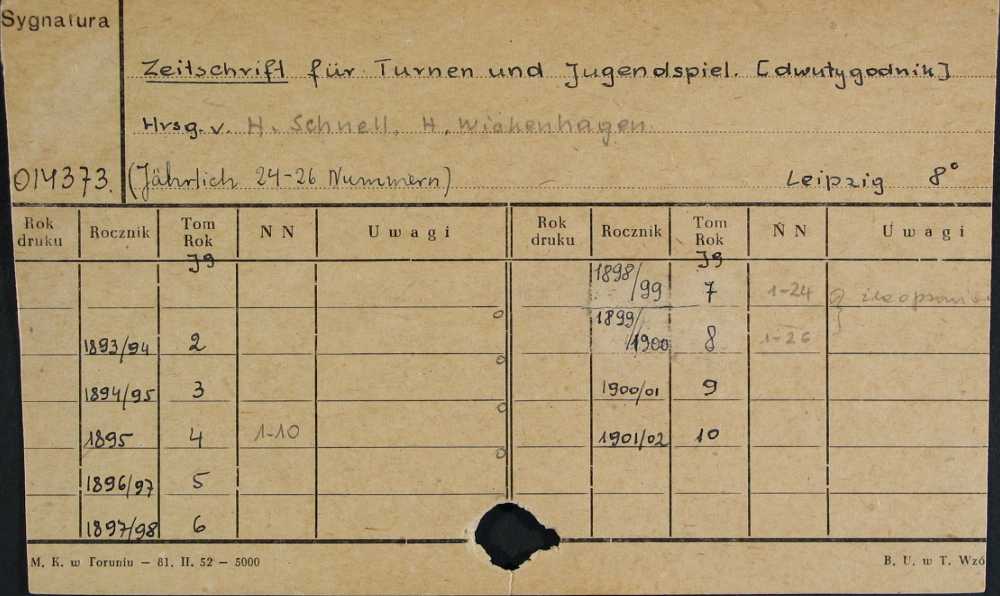 Sygnatura
Zeitschrift für Turnen und Jugendspiel. [dwutygodnik]
Hrsg. v. H. Schnell, H. Wickenhagen
014373. (Jährlich 24-26 Nummern) Leipzig 8°
Rok druku Rocznik Tom Rok N N Uwagi Rok druku Rocznik Tom Rok N N Uwagi
Jg Jg
1898/99 7 1-24
1893/94 2 1899/1900 8 1-26
1894/95 3 1900/01 9
1895 4 1-10 1901/02 10
1896/97 5
1897/98 6
M. K. w Toruniu — 81. II. 52 — 5000 B. U. w T. Wzó